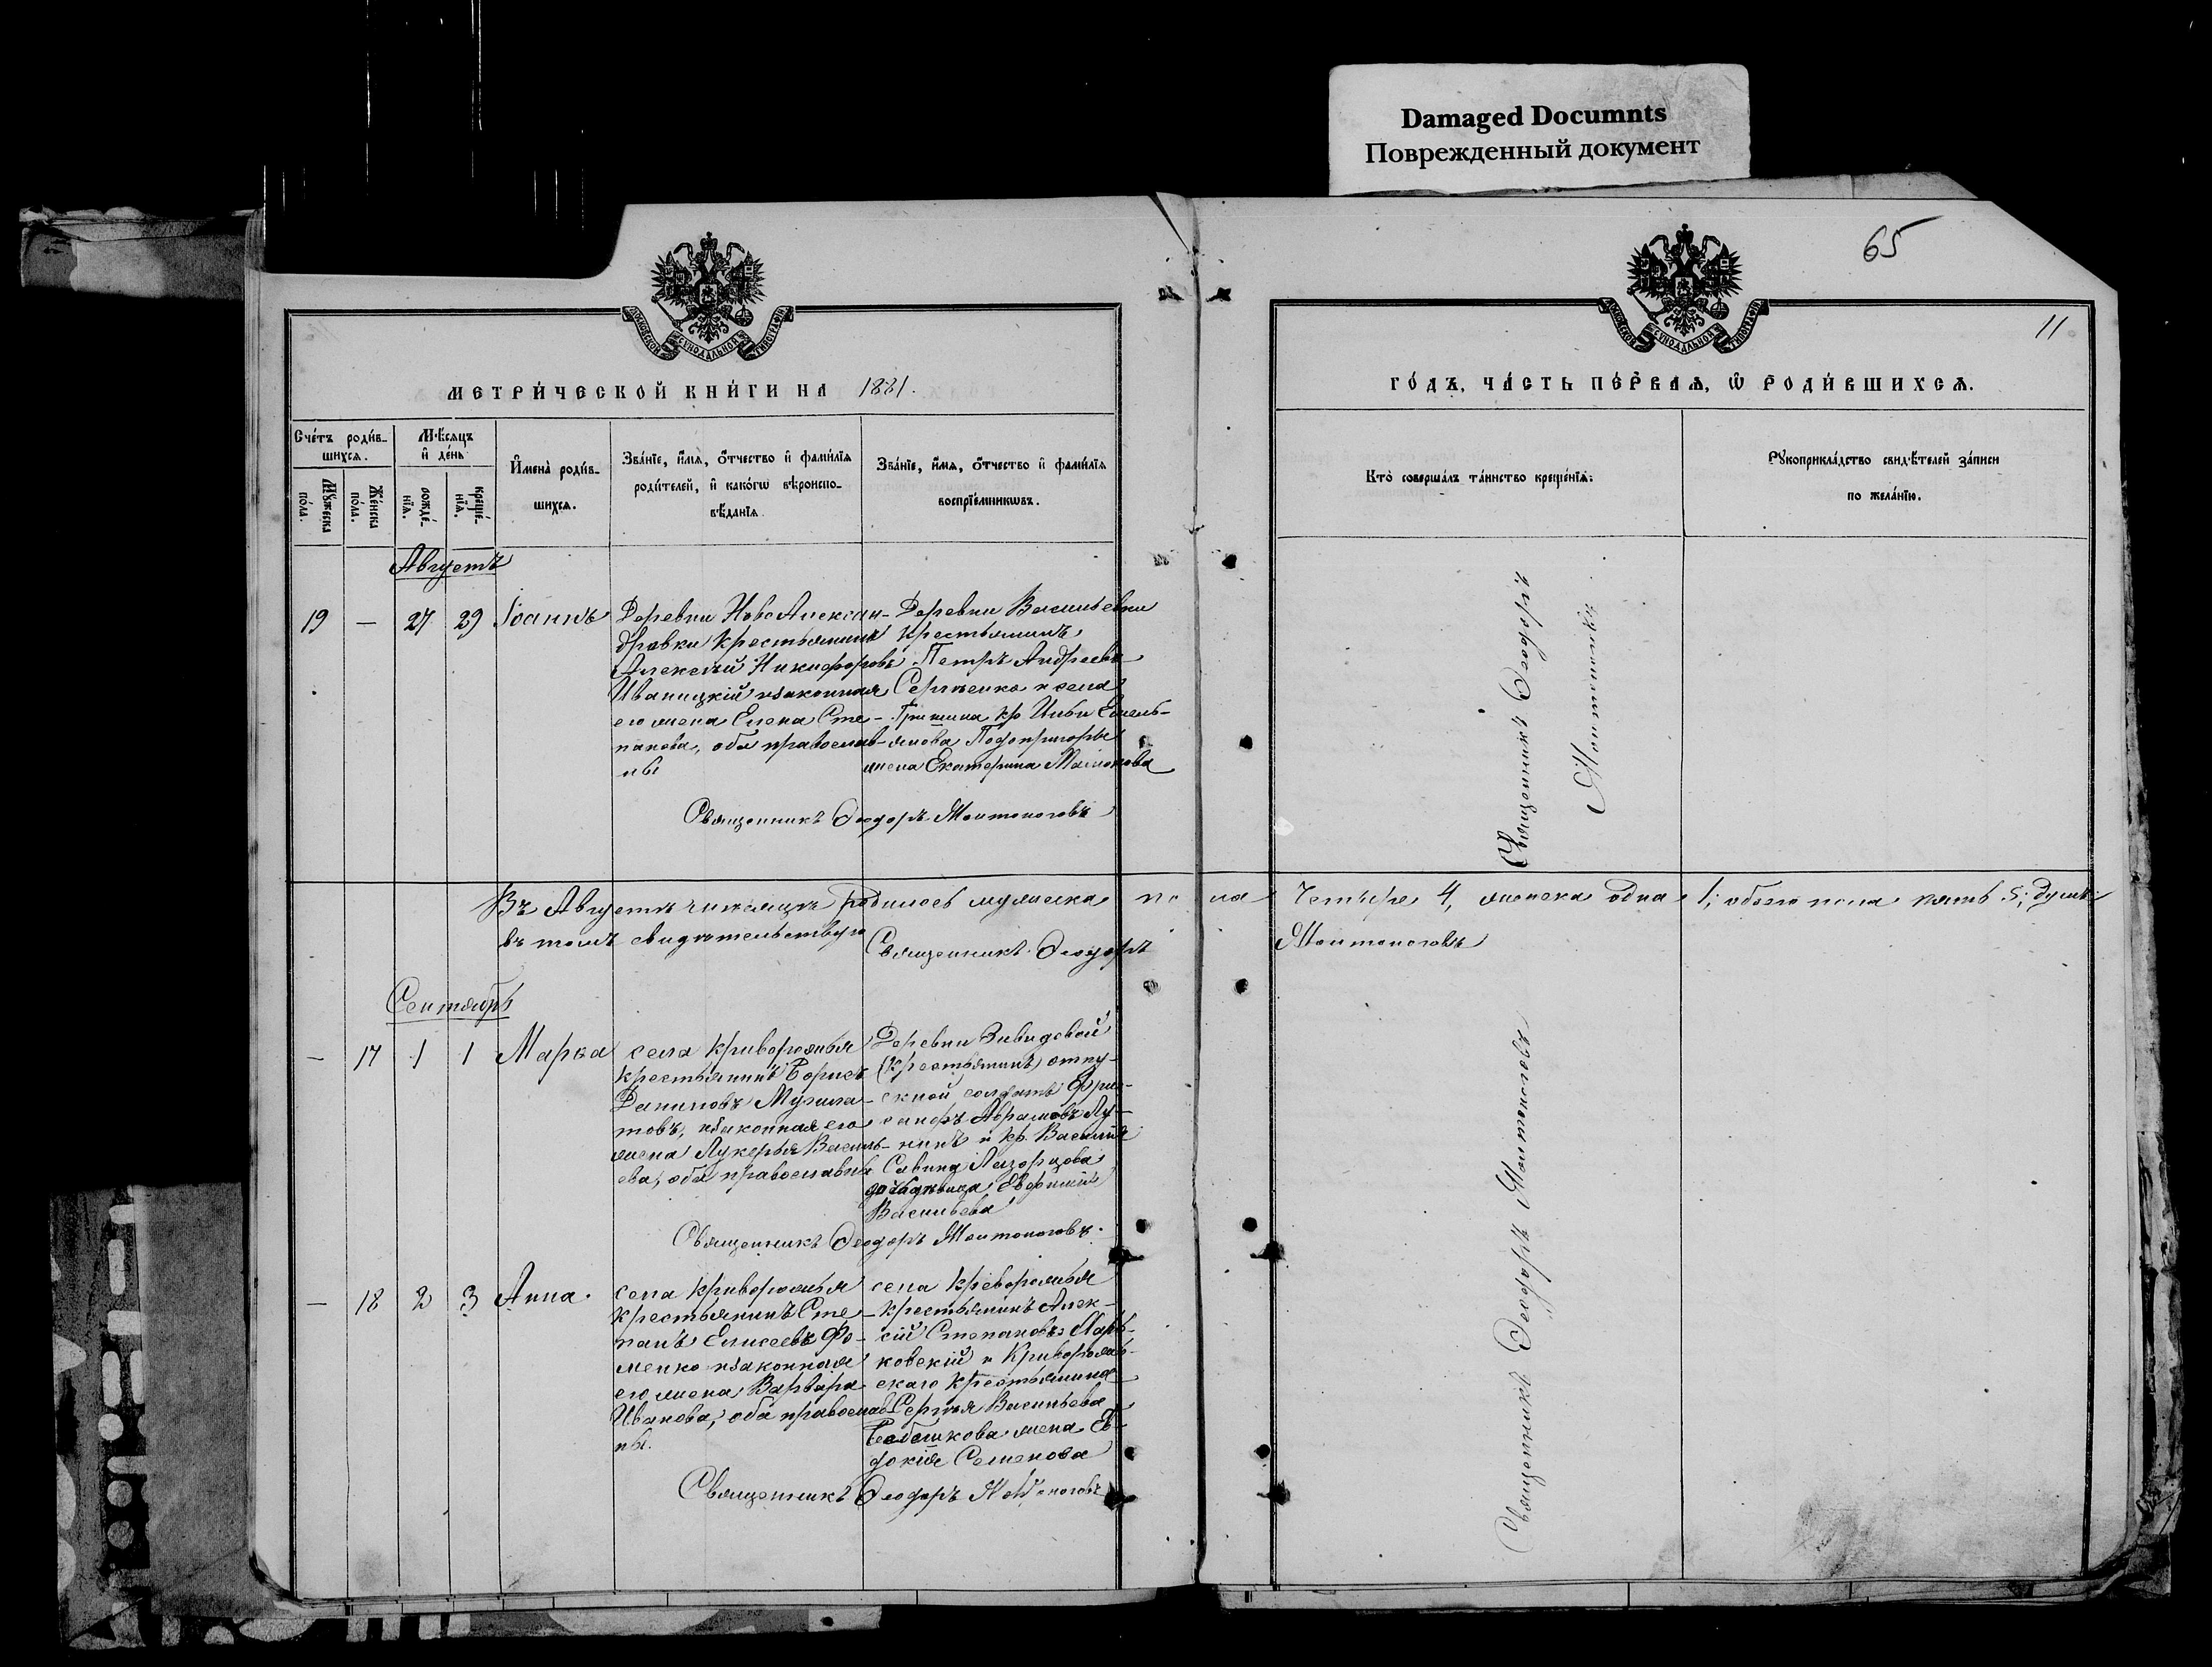 Damaged Documnts
Поврежденный документ
65
11
МОСКОВСКОЙ СУНОДАЛЬНОЙ ТИПОГРАФІИ
МОСКОВСКОЙ СУНОДАЛЬНОЙ ТИПОГРАФІИ
МЕТРИ́ЧЕСКОЙ КНИ́ГИ НА 1881.
ГО́ДЪ, ЧА́СТЬ ПЕ́РВАѦ, Ѽ РОДИ́ВШИХСѦ.
Сче́тъ роди́в-
шихсѧ.
Мꙋ́жеска
по́ла.
Же́нска
по́ла.
Мѣ́сѧцъ
и҆ де́нь
рожде́-
нїѧ.
креще́-
нїѧ.
И҆мена̀ роди́в-
шихсѧ.
Зва́нїе, и҆́мѧ, ѻ҆́тчество и҆ фами́лїѧ
роди́телей, и҆ како́гѡ вѣроиспо-
вѣ́данїѧ
Зва́нїе, и҆́мѧ, ѻ҆́тчество и҆ фами́лїѧ
воспрїе́мникѡвъ.
Кто̀ соверша́лъ та́инство креще́нїѧ:
Рꙋкоприкла́дство свидѣ́телей за́писи
по жела́нїю.
Августъ
19 — 27 29 Іоаннъ
Деревни НовоАлексан-
дровки крестьянинъ
Алексѣй Никифоровъ
Иваницкій и законная
его жена Елена Сте-
панова, оба православ-
ны
Деревни Васильевки
крестьянинъ
Петръ Андреевъ
Сергѣенко и села
Гришина кр. Ильи Емель-
янова Подопригоры
жена Екатерина
Священникъ Ѳеодоръ Молтоноговъ
Священникъ Ѳеодоръ
Молтоноговъ
Въ Августѣ мѣсяцѣ родилось мужеска пола четыре 4, женска одна 1; обоего пола пять 5; душъ
въ томъ свидѣтельствую
Священникъ Ѳеодоръ Молтоноговъ
Сентябрь
— 17 1 1 Марѳа
села Криворожья
крестьянинъ Борисъ
Даниловъ
товъ, и законная его
жена Лукерья Василь-
ева, оба православны
Деревни
крестьянинъ отпу-
скной солдатъ
Абрамовъ Лу-
нинъ и кр. Василія
Савина
дочь дѣвица Евфимія
Васильева
Священникъ Ѳеодоръ Молтоноговъ.
Священникъ Ѳеодоръ Молтоноговъ
— 18 2 3 Анна.
села Криворожья
крестьянинъ Сте-
панъ Елисеевъ Фо-
менко и законная
его жена Варвара
Иванова, оба православ-
ны.
села Криворожья
крестьянинъ Алек-
сій Степановъ Марь-
ковскій и Криворож-
скаго крестьянина
Сергѣя Васильева
жена Ев-
докія Семенова
Священникъ Ѳеодоръ Молтоноговъ